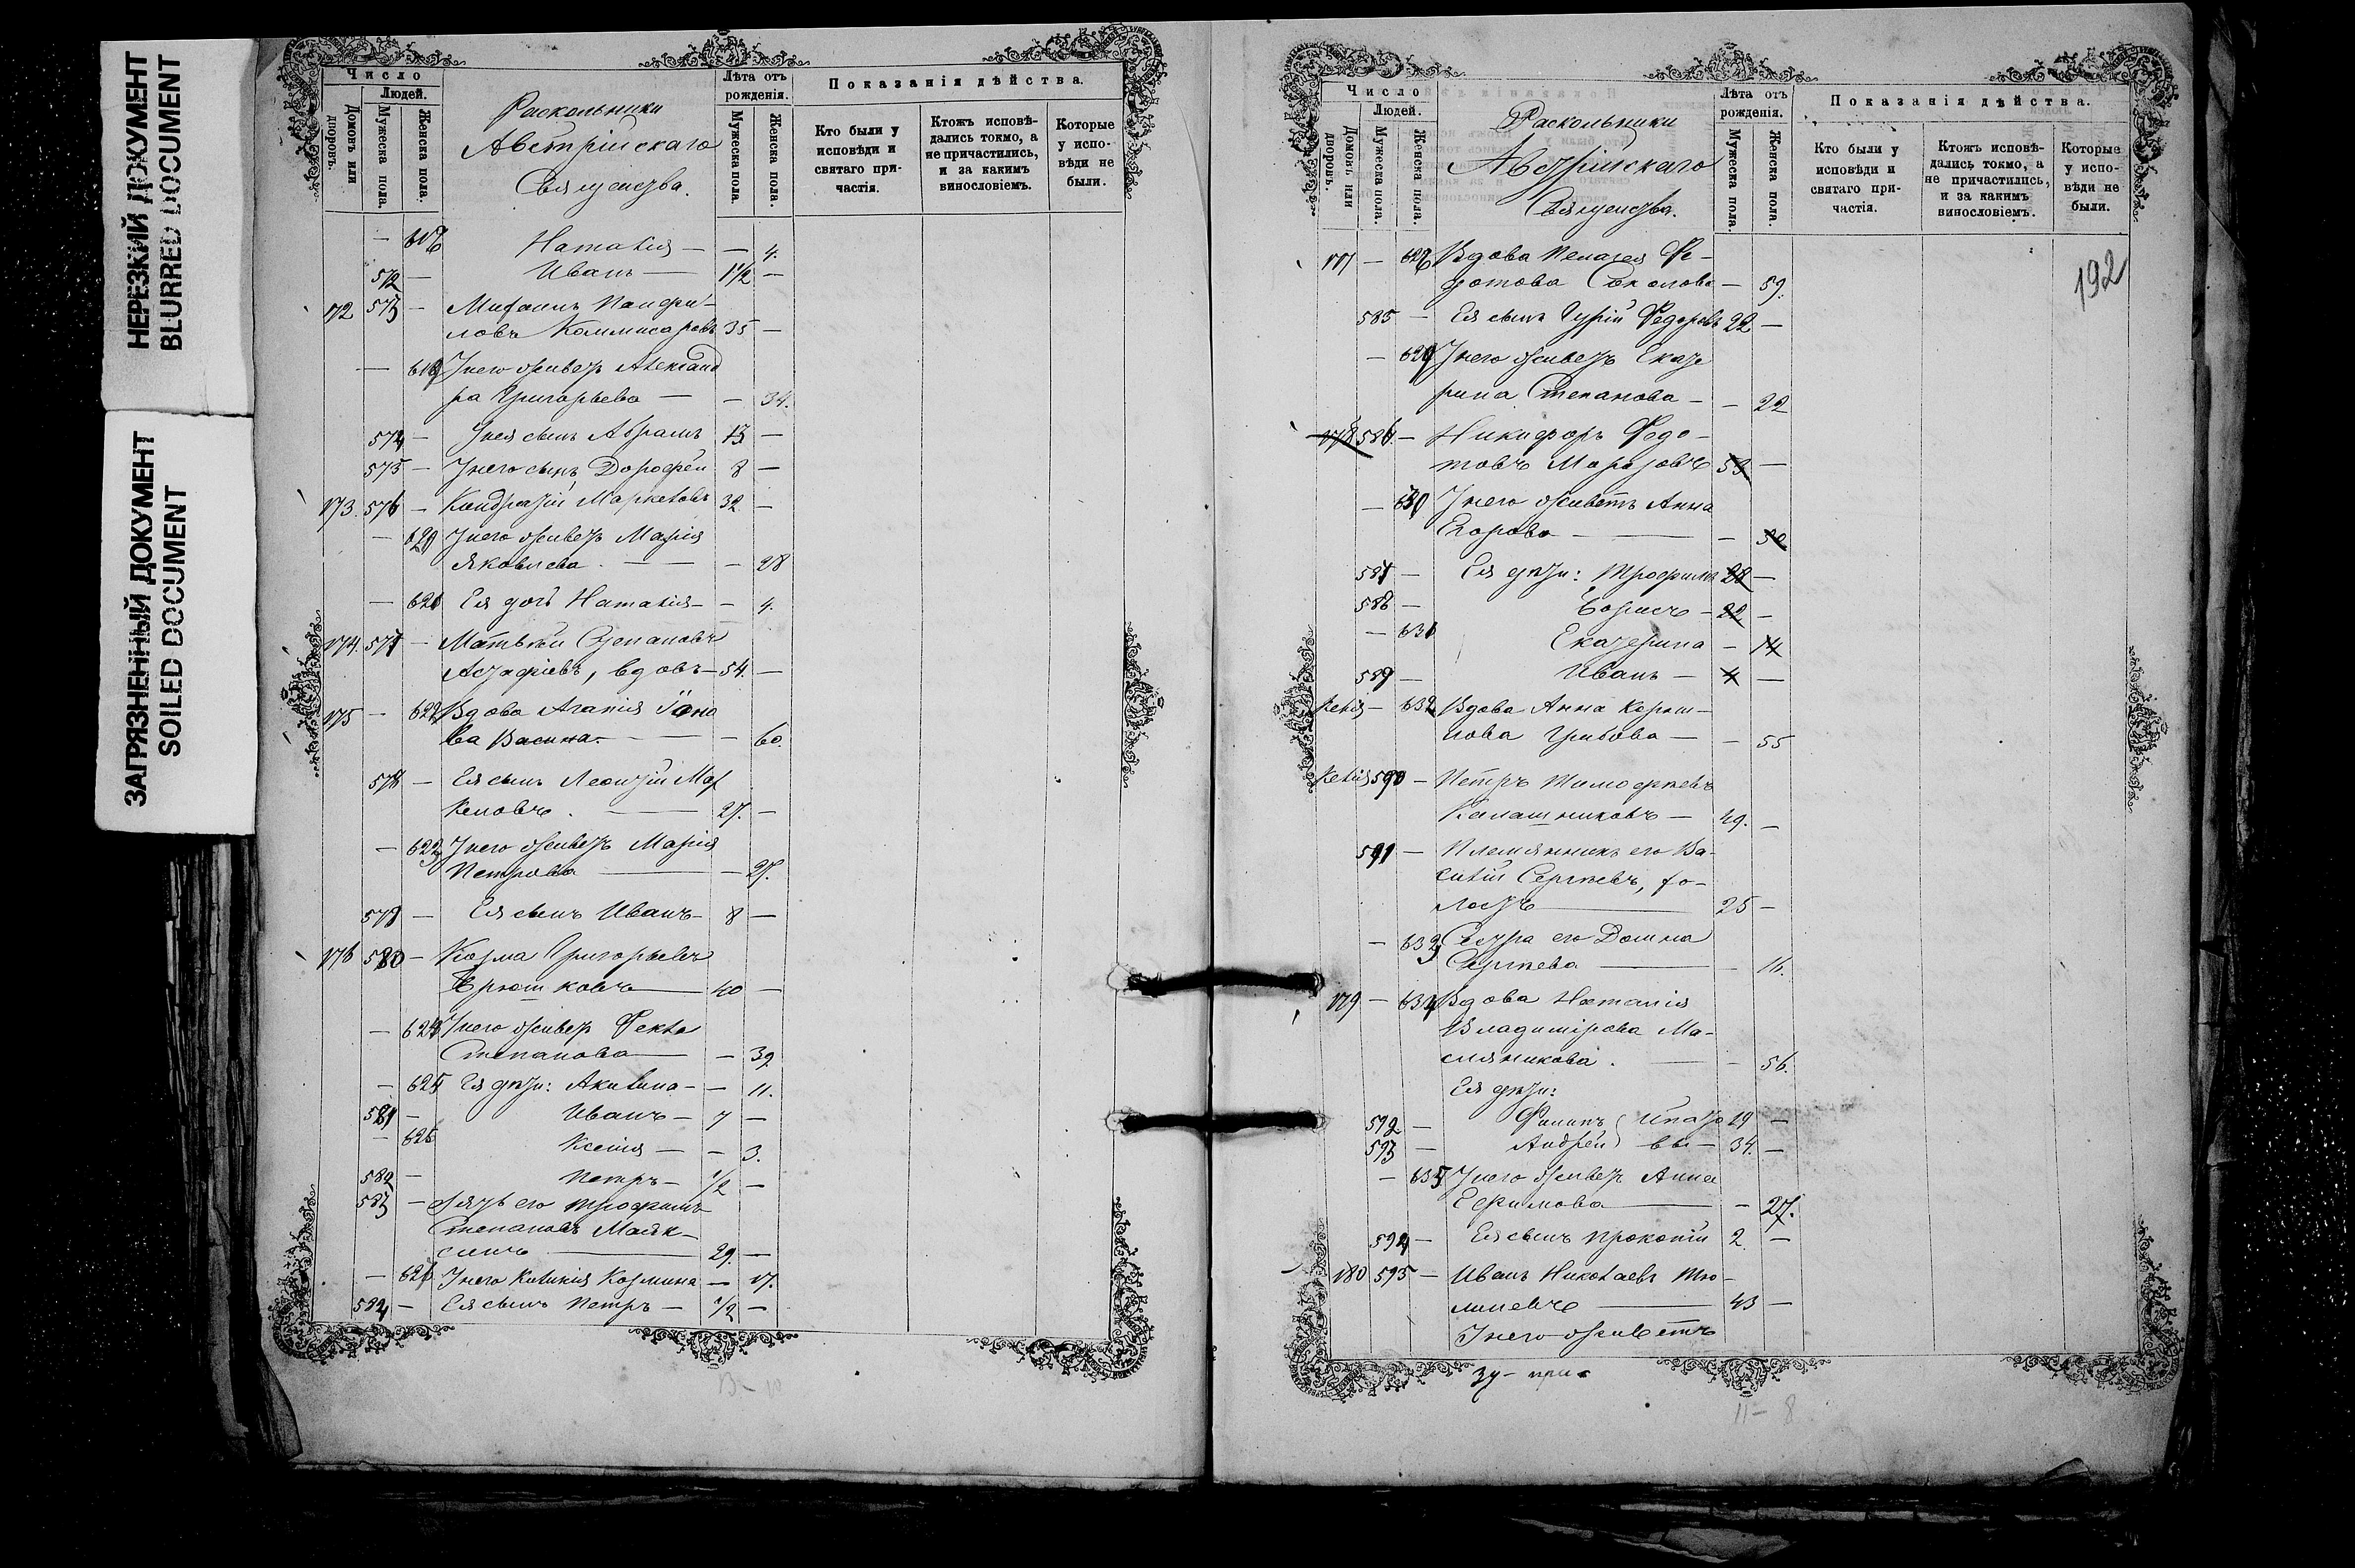 НЕРЕЗКИЙ ДОКУМЕНТ
BLURRED DOCUMENT
ЗАГРЯЗНЕННЫЙ ДОКУМЕНТ
SOILED DOCUMENT
Число
Людей.
Домовъ или дворовъ.
Мужеска пола.
Женска пола.
Раскольники
Австрійскаго
Священства.
Лѣта отъ рожденія.
Мужеска пола.
Женска пола.
Показанія дѣйства.
Кто были у исповѣди и святаго причастія.
Ктожъ исповѣдались токмо, а не причастились, и за какимъ винословіемъ.
Которые у исповѣди не были.
— Наталія — — 4.
572 — Иванъ — 1 1/2 —
172 573 — Панфи-
ловъ Коммисаровъ 35 —
— У него живетъ Александ
ра Григорьева — — 34.
574 — У нея сынъ Абрамъ 13 —
575 — У него сынъ Дорофей 8 —
173. 576 — Кондратій Маркеловъ 32 —
— У него живетъ Марія
Яковлева. — — 28
— 621 Ея дочь Наталія — — 4.
174. 577 — Матвѣй Степановъ
Астафіевъ, вдовъ — 54. —
175 — 622 Вдова Агапія
ва Васина. — — 60.
578 — Ея сынъ Леонтій Мар
келовъ. — 27. —
— 623 У него живетъ Марія
Петрова — — 27.
579 — Ея сынъ Иванъ — 8 —
176 580 — Козма Григорьевъ
Хрюшковъ — 40 —
— 624 У него живетъ Фекла
Степанова — — 39.
— 625 Ея дѣти: Акилина — — 11.
581 — Иванъ — 7 —
— 626 Ксенія — — 3.
582 — Петръ — 1/2 —
583 — Зять его Трофимъ
Степановъ Маяк-
синъ — 29. —
— У него Киликія Козмина — 17.
584 — Ея сынъ Петръ — 1/2 —
Число
Людей.
Домовъ или дворовъ.
Мужеска пола.
Женска пола.
Раскольники
Австрійскаго
Священства.
Лѣта отъ рожденія.
Мужеска пола.
Женска пола.
Показанія дѣйства.
Кто были у исповѣди и святаго причастія.
Ктожъ исповѣдались токмо, а не причастились, и за какимъ винословіемъ.
Которые у исповѣди не были.
192
177 — 628 Вдова Пелагея Фе-
дотова Соколова — 59.
585 — Ея сынъ Гурій Федоровъ 22 —
— 629 У него живетъ Екате
рина Степанова — — 22
178 586. — Никифоръ Федо-
товъ Морозовъ 53 —
— 630 У него живетъ Анна
Егорова — — 52
587 — Ея дѣти: Трофимъ 28 —
588 — Борисъ — 22 —
— 631 Екатерина — 14
589 — Иванъ — 4 —
Келія — 632 Вдова Анна Корни-
лова Грибова — — 55
Келія 590 — Петръ Тимофѣевъ
Калашниковъ — 49. —
591 — Племянникъ его Ва-
силій Сергѣевъ, хо-
лостъ — 25 —
— 633 Сестра его Домна
Сергѣева — — 16.
179 — 634 Вдова Наталія
Владимірова Ма-
сляникова. — — 56.
Ея дѣти:
592 — Филипъ 29 —
593 — Андрей вы — 34. —
— 635 У него живетъ Анна
Ефимова — — 27.
594 — Ея сынъ Прокопій 2. —
180 595 — Иванъ Николаевъ Тю-
линевъ — 43 —
У него живетъ
11 — 8